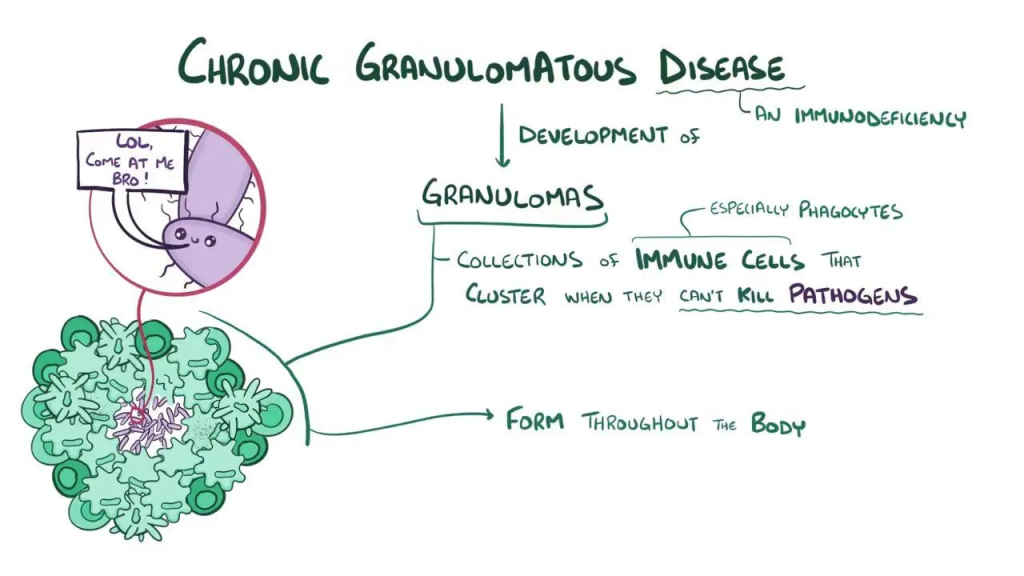 CHRONIC GRANULOMATOUS DISEASE
AN IMMUNODEFICIENCY
DEVELOPMENT OF
GRANULOMAS
ESPECIALLY PHAGOCYTES
COLLECTIONS OF IMMUNE CELLS THAT
CLUSTER WHEN THEY CAN'T KILL PATHOGENS
FORM THROUGHOUT THE BODY
LOL,
COME AT ME
BRO!